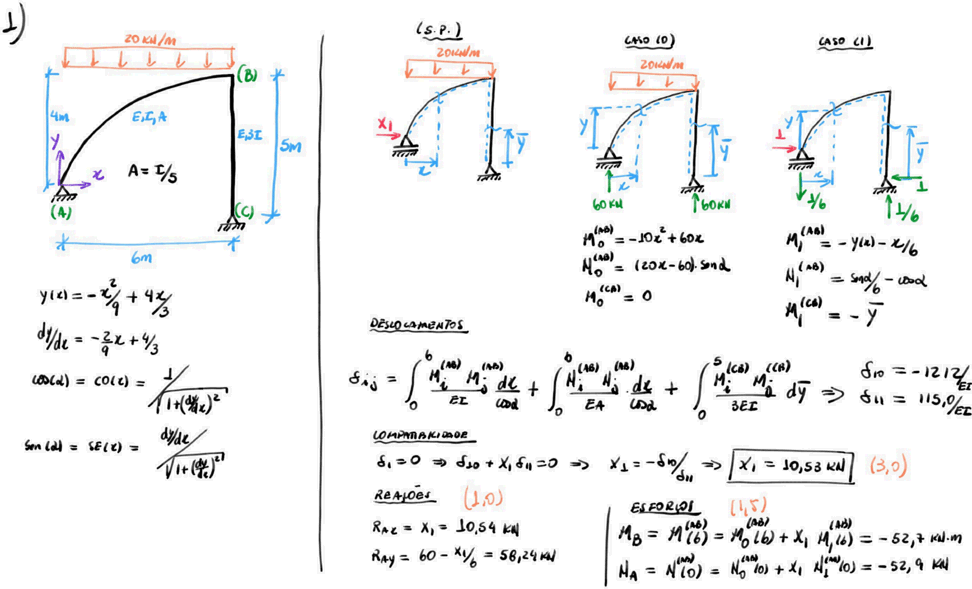 1)
20 KN/m
(B)
4m
E,I,A
E,3I
5m
y
x
A = I/5
(A)
(C)
6m
y(x) = -x²/9 + 4x/3
dy/dx = -2/9 x + 4/3
cos(α) = CO(x) = 1/√(1+(dy/dx)²)
sen(α) = SE(x) = dy/dx/√(1+(dy/dx)²)
(S.P.)
20KN/m
X1
x
ȳ
CASO (0)
20KN/m
y
x
ȳ
60KN
60KN
M0^(AB) = -10x² + 60x
N0^(AB) = (20x-60)·senα
M0^(CB) = 0
CASO (1)
1
y
x
ȳ
1
1/6
1/6
M1^(AB) = -y(x) - x/6
N1^(AB) = senα/6 - cosα
M1^(CB) = -ȳ
DESLOCAMENTOS
δij = ∫0^6 Mi^(AB) Mj^(AB)/EI dx/cosα + ∫0^6 Ni^(AB) Nj^(AB)/EA · dx/cosα + ∫0^5 Mi^(CB) Mj^(CB)/3EI dȳ ⇒ δ10 = -1212/EI
δ11 = 115,0/EI
COMPATIBILIDADE
δ1 = 0 ⇒ δ10 + X1 δ11 = 0 ⇒ X1 = -δ10/δ11 ⇒ X1 = 10,53 KN (3,0)
REAÇÕES (1,0)
RAx = X1 = 10,54 KN
RAy = 60 - X1/6 = 58,24 KN
ESFORÇOS (1,5)
MB = M^(AB)(6) = M0^(AB)(6) + X1 M1^(AB)(6) = -52,7 KN·m
NA = N^(AB)(0) = N0^(AB)(0) + X1 N1^(AB)(0) = -52,9 KN